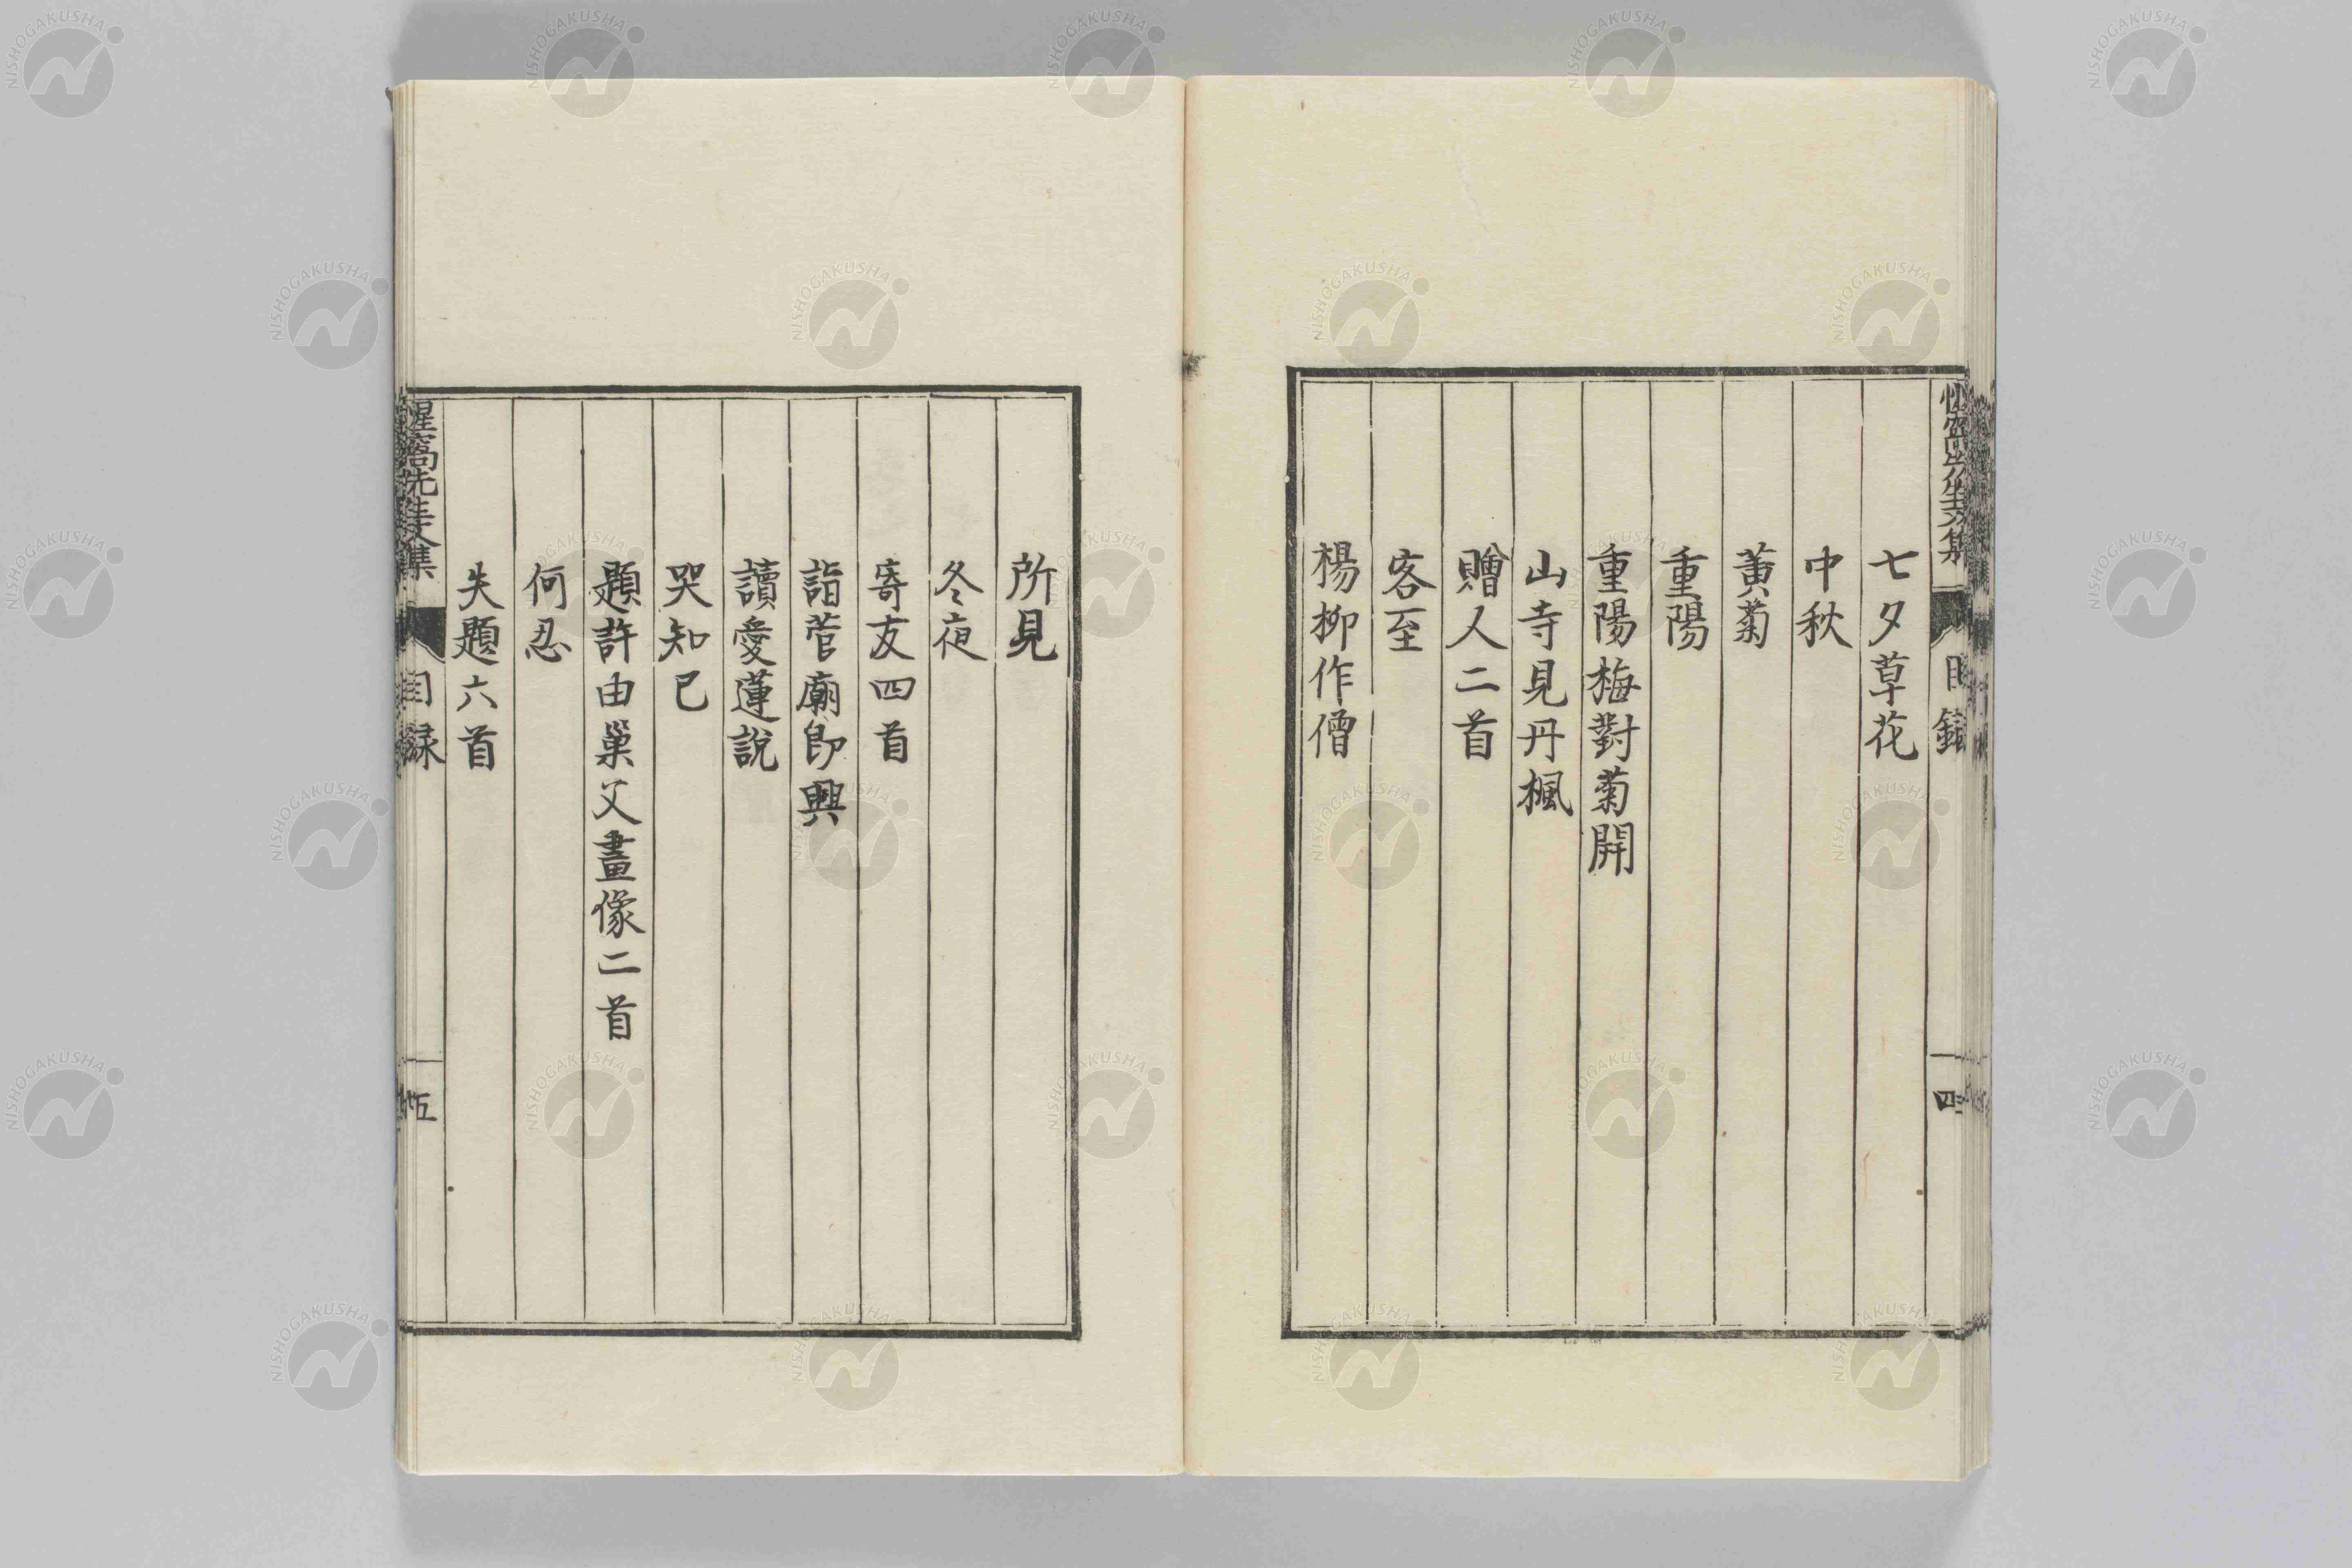 七夕草花
中秋
黄菊
重陽
重陽梅對菊開
山寺見丹楓
贈人二首
客至
楊柳作僧
所見
冬夜
寄友四首
詣菅廟即興
讀愛蓮說
哭知已
題許由巢父畫像二首
何忍
失題六首
惺窩先生文集
目録
五
NISHOGAKUSHA